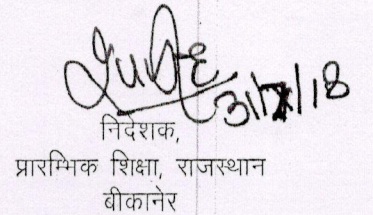 31/7/18
निदेशक,
प्रारम्भिक शिक्षा, राजस्थान
बीकानेर